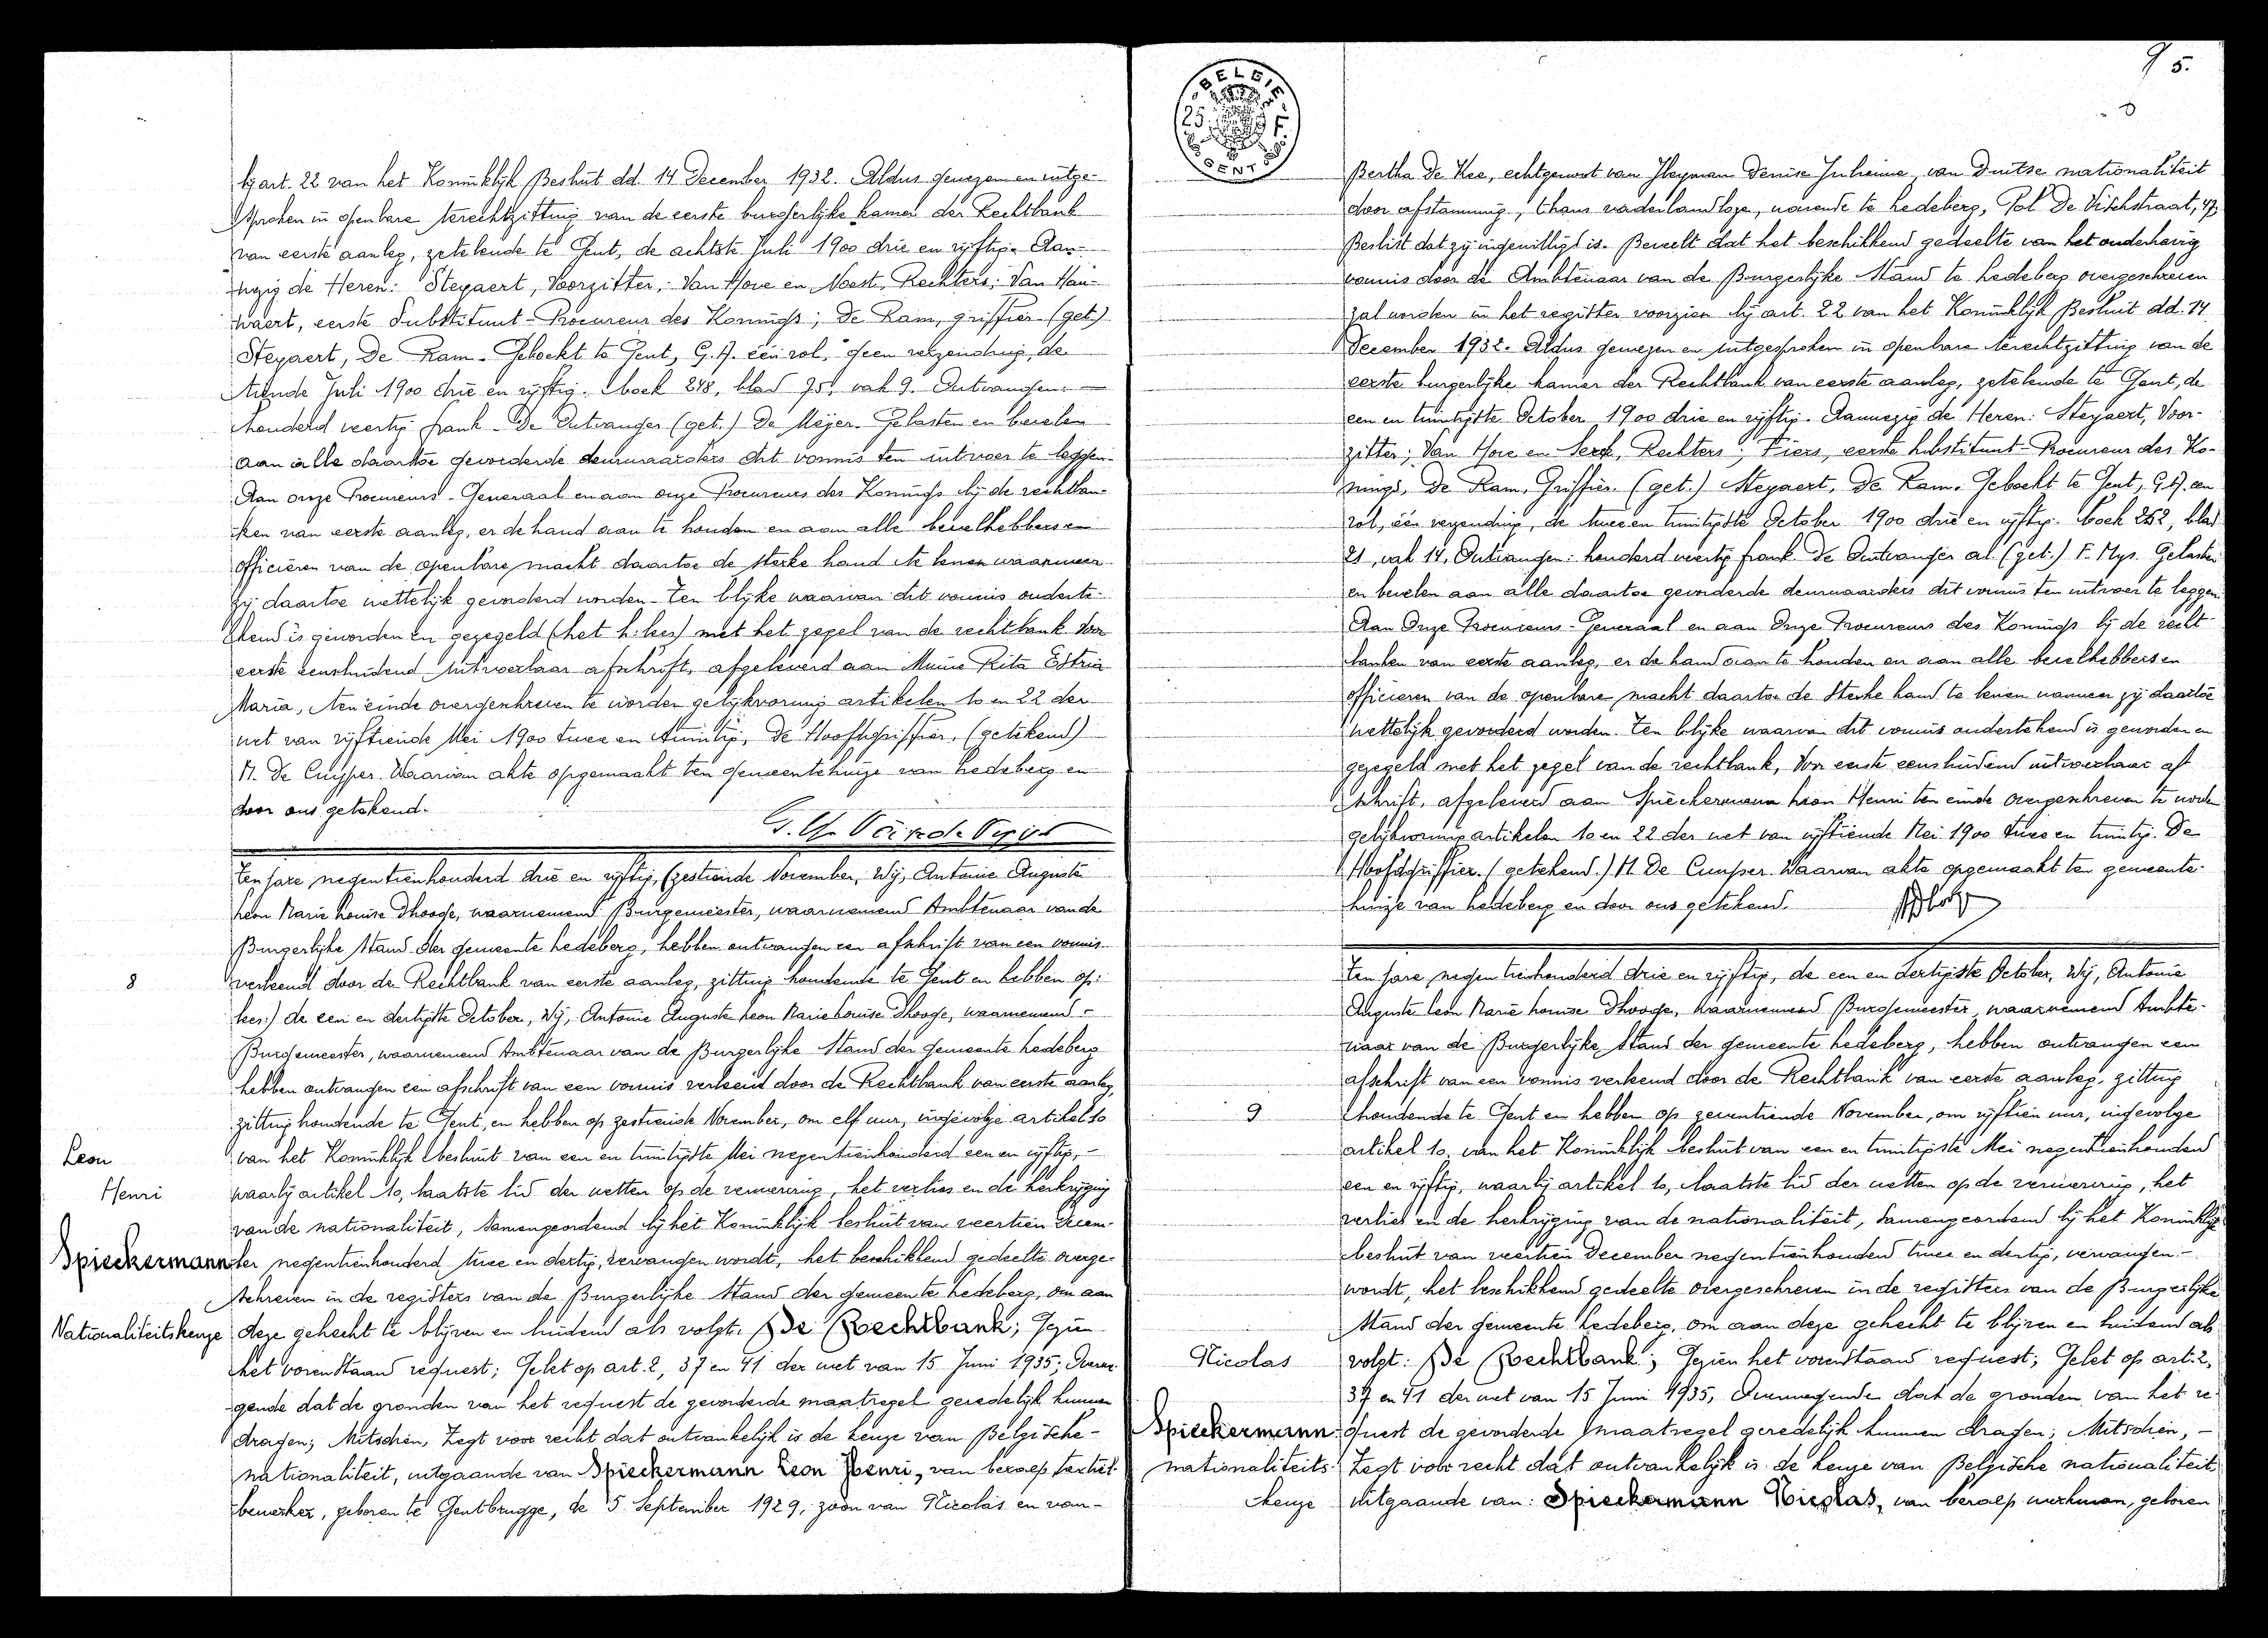 bij art. 22 van het Koninklijk Besluit dd. 14 December 1932. Aldus gewezen en uitge-
sproken in openbare terechtzitting van de eerste burgerlijke kamer der Rechtbank
van eerste aanleg, zetelende te Gent, de achtste Juli 1900 drie en vijftig. Aan-
wezig de Heren: Steyaert, Voorzitter; Van Hove en Noest, Rechters; Van Hau-
waert, eerste Substituut-Procureur des Konings; De Ram, griffier. (get.)
Steyaert, De Ram. Geboekt te Gent, G.A. één rol, geen verzending, de
tiende Juli 1900 drie en vijftig. boek 248, blad 75, vak 9. Ontvangen:
honderd veertig frank. De Ontvanger (get.) De Meijer. Gelasten en bevelen
aan alle daartoe gevorderde deurwaarders dit vonnis ten uitvoer te leggen.
Aan onze Procureurs-Generaal en aan onze Procureurs des Konings bij de rechtban-
ken van eerste aanleg, er de hand aan te houden en aan alle bevelhebbers en
officieren van de openbare macht daartoe de sterke hand te lenen wanneer
zij daartoe wettelijk gevorderd worden. Ten blijke waarvan dit vonnis onderte-
kend is geworden en gezegeld (het h. lees) met het zegel van de rechtbank. Voor
eerste eensluidend uitvoerbaar afschrift, afgeleverd aan Rita
Maria, ten einde overgeschreven te worden gelijkvormig artikelen 10 en 22 der
wet van vijftiende Mei 1900 twee en twintig. De Hoofdgriffier, (getekend)
H. De Cuyper. Waarvan akte opgemaakt ten gemeentehuize van Ledeberg en
door ons getekend.
Ten jare negentienhonderd drie en vijftig, zestiende November, Wij, Antonie Auguste
Leon Marie Louise Dhooge, waarnemend Burgemeester, waarnemend Ambtenaar van de
Burgerlijke Stand der gemeente Ledeberg, hebben ontvangen een afschrift van een vonnis
8
verleend door de Rechtbank van eerste aanleg, zitting houdende te Gent en hebben op:
lees:) de een en dertigste October, Wij, Antonie Auguste Leon Marie Louise Dhooge, waarnemend
Burgemeester, waarnemend Ambtenaar van de Burgerlijke Stand der gemeente Ledeberg
hebben ontvangen een afschrift van een vonnis verleend door de Rechtbank van eerste aanleg,
zitting houdende te Gent, en hebben op zestiende November, om elf uur, ingevolge artikel 10
Leon
van het Koninklijk besluit van een en twintigste Mei negentienhonderd een en vijftig,
Henri
waarbij artikel 10, laatste lid der wetten op de verwerving, het verlies en de herkrijging
van de nationaliteit, samengeordend bij het Koninklijk besluit van veertien Decem-
Spieckermann
ber negentienhonderd twee en dertig, vervangen wordt, het beschikkend gedeelte overge-
schreven in de registers van de Burgerlijke Stand der gemeente Ledeberg, om aan
Nationaliteitskeuze
deze gehecht te blijven en luidend als volgt: De Rechtbank; Gezien
het vorenstaand request; Gelet op art. 2, 37 en 41 der wet van 15 Juni 1935; Overwe-
gende dat de gronden van het request de gevorderde maatregel geredelijk kunnen
dragen; Mitsdien, Zegt voor recht dat ontvankelijk is de keuze van Belgische
nationaliteit, uitgaande van Spieckermann Leon Henri, van beroep textiel-
bewerker, geboren te Gentbrugge, de 5 September 1929, zoon van Nicolas en van
95.
BELGIE
25 F.
GENT
Bertha De Kee, echtgenoot van Heyman Denise Julienne, van Duitse nationaliteit
door afstamming, thans vaderlandloze, wonende te Ledeberg, Pol De Vischstraat, 47,
Beslist dat zij ingewilligd is. Beveelt dat het beschikkend gedeelte van het onderhavig
vonnis door de Ambtenaar van de Burgerlijke Stand te Ledeberg overgeschreven
zal worden in het register voorzien bij art. 22 van het Koninklijk Besluit dd. 14
December 1932. Aldus gewezen en uitgesproken in openbare terechtzitting van de
eerste burgerlijke kamer der Rechtbank van eerste aanleg, zetelende te Gent, de
een en twintigste October 1900 drie en vijftig. Aanwezig de Heren: Steyaert, Voor-
zitter; Van Hove en Rechters; Fiers, eerste substituut-Procureur des Ko-
nings, De Ram, Griffier. (get.) Steyaert, De Ram. Geboekt te Gent, G.A. een
rol, één verzending, de twee en twintigste October 1900 drie en vijftig. boek 252, blad
21, vak 14, Ontvangen: honderd veertig frank. De Ontvanger a.i. (get.) F. Mys. Gelasten
en bevelen aan alle daartoe gevorderde deurwaarders dit vonnis ten uitvoer te leggen.
Aan Onze Procureurs-Generaal en aan Onze Procureurs des Konings bij de recht-
banken van eerste aanleg, er de hand aan te houden en aan alle bevelhebbers en
officieren van de openbare macht daartoe de sterke hand te lenen wanneer zij daartoe
wettelijk gevorderd worden. Ten blijke waarvan dit vonnis ondertekend is geworden en
gezegeld met het zegel van de rechtbank, Voor eerste eensluidend uitvoerbaar af-
schrift, afgeleverd aan Spieckermann Leon Henri ten einde overgeschreven te worden
gelijkvormig artikelen 10 en 22 der wet van vijftiende Mei 1900 twee en twintig. De
Hoofdgriffier. (getekend.) H. De Cuyper. Waarvan akte opgemaakt ten gemeente-
huize van Ledeberg en door ons getekend.
Ten jare negentienhonderd drie en vijftig, de een en dertigste October, Wij, Antonie
Auguste Leon Marie Louise Dhooge, waarnemend Burgemeester, waarnemend Ambte-
naar van de Burgerlijke Stand der gemeente Ledeberg, hebben ontvangen een
afschrift van een vonnis verleend door de Rechtbank van eerste aanleg, zitting
9
houdende te Gent en hebben op zeventiende November, om vijftien uur, ingevolge
artikel 10, van het Koninklijk besluit van een en twintigste Mei negentienhonderd
een en vijftig, waarbij artikel 10, laatste lid der wetten op de verwerving, het
verlies en de herkrijging van de nationaliteit, samengeordend bij het Koninklijk
besluit van veertien December negentienhonderd twee en dertig, vervangen
wordt, het beschikkend gedeelte overgeschreven in de registers van de Burgerlijke
Stand der gemeente Ledeberg, om aan deze gehecht te blijven en luidend als
Nicolas
volgt: De Rechtbank; Gezien het vorenstaand request; Gelet op art. 2,
37 en 41 der wet van 15 Juni 1935, Overwegende dat de gronden van het re-
Spieckermann
quest de gevorderde maatregel geredelijk kunnen dragen; Mitsdien,
nationaliteits-
Zegt voor recht dat ontvankelijk is de keuze van Belgische nationaliteit,
keuze
uitgaande van: Spieckermann Nicolas, van beroep werkman, geboren